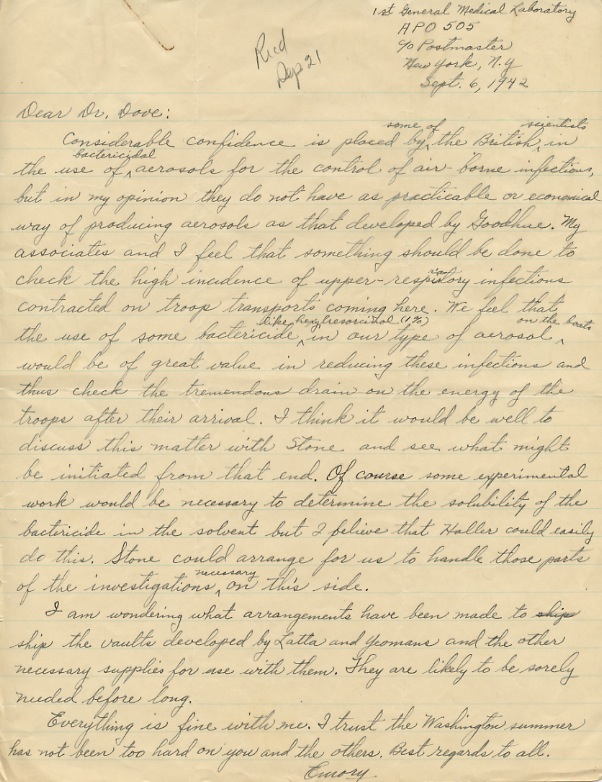 1st General Medical Laboratory
APO 505
℅ Postmaster
New York, N.Y
Sept. 6, 1942
Ricd
Sep 21
Dear Dr. Dove:
Considerable confidence is placed by some of the British scientists in
the use of bactericidal aerosols for the control of air-borne infections,
but in my opinion they do not have as practicable or economical
way of producing aerosols as that developed by Goodhue. My
associates and I feel that something should be done to
check the high incidence of upper-respiratory infections
contracted on troop transports coming here. We feel that
the use of some bactericide like hexylresorcinol (1%) in our type of aerosol on the boats
would be of great value in reducing these infections and
thus check the tremendous drain on the energy of the
troops after their arrival. I think it would be well to
discuss this matter with Stone and see what might
be initiated from that end. Of course some experimental
work would be necessary to determine the solubility of the
bactericide in the solvent but I believe that Haller could easily
do this. Stone could arrange for us to handle those parts
of the investigations necessary on this side.
I am wondering what arrangements have been made to ship
ship the vaults developed by Latta and Yeomans and the other
necessary supplies for use with them. They are likely to be sorely
needed before long.
Everything is fine with me. I trust the Washington summer
has not been too hard on you and the others. Best regards to all.
Emory.